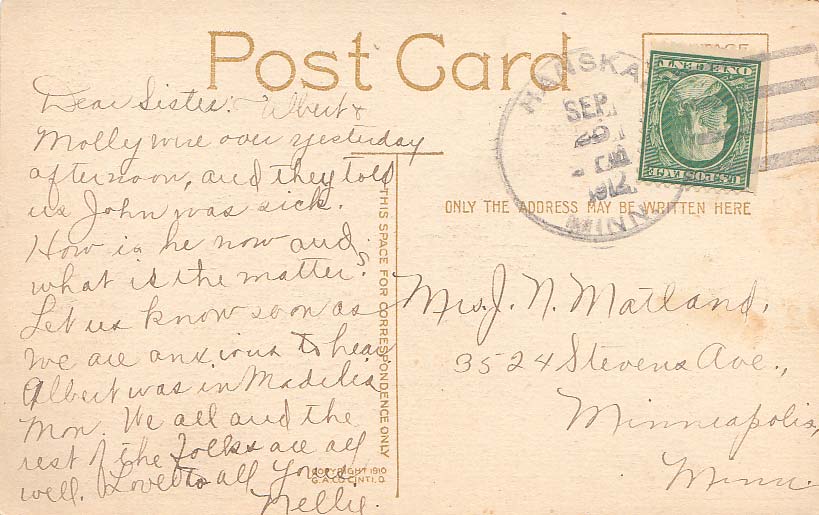 Post Card
Dear Sister: Albert &
Molly were over yesterday
afternoon, and they told
us John was sick.
How is he now and
what is the matter?
Let us know soon as
we are anxious to hear
Albert was in Madelia
Mon. We all and the
rest of the folks are all
well. Love to all Yours,
Nellie.
THIS SPACE FOR CORRESPONDENCE ONLY
COPYRIGHT 1910
G.A.CO CINTI.O.
HANSKA
SEP
1912
MINN
ONE CENT
U.S. POSTAGE
ONLY THE ADDRESS MAY BE WRITTEN HERE
Mrs. J. N. Matland,
3524 Stevens Ave.,
Minneapolis,
Minn.